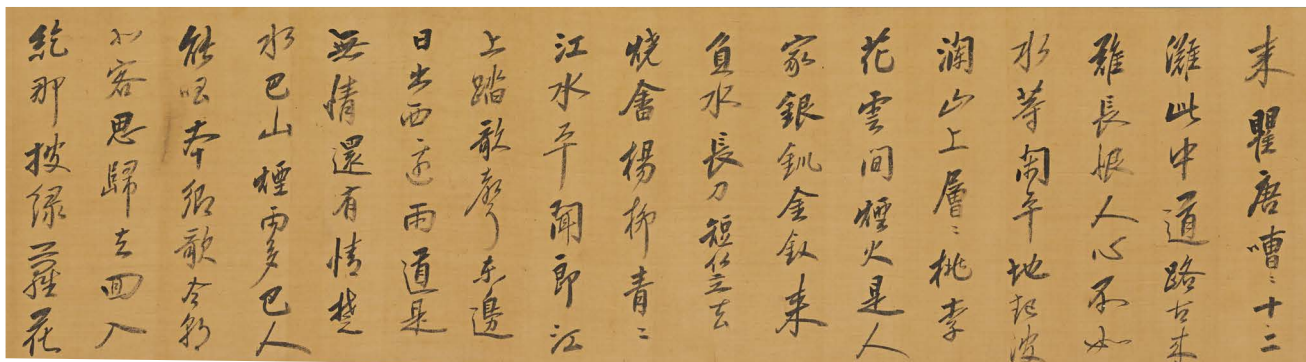 來瞿唐嘈〻十二
灘此中道路古來
難長恨人心不如
水等閑平地起波
瀾山上層〻桃李
花雲間煙火是人
家銀釧金釵來
負水長刀短笠去
燒畬楊柳青〻
江水平聞郎江
上踏歌聲東邊
日出西邊雨道是
無情還有情楚
水巴山煙雨多巴人
能唱本鄉歌今朝
北客思歸去回入
紇那披綠蘿花